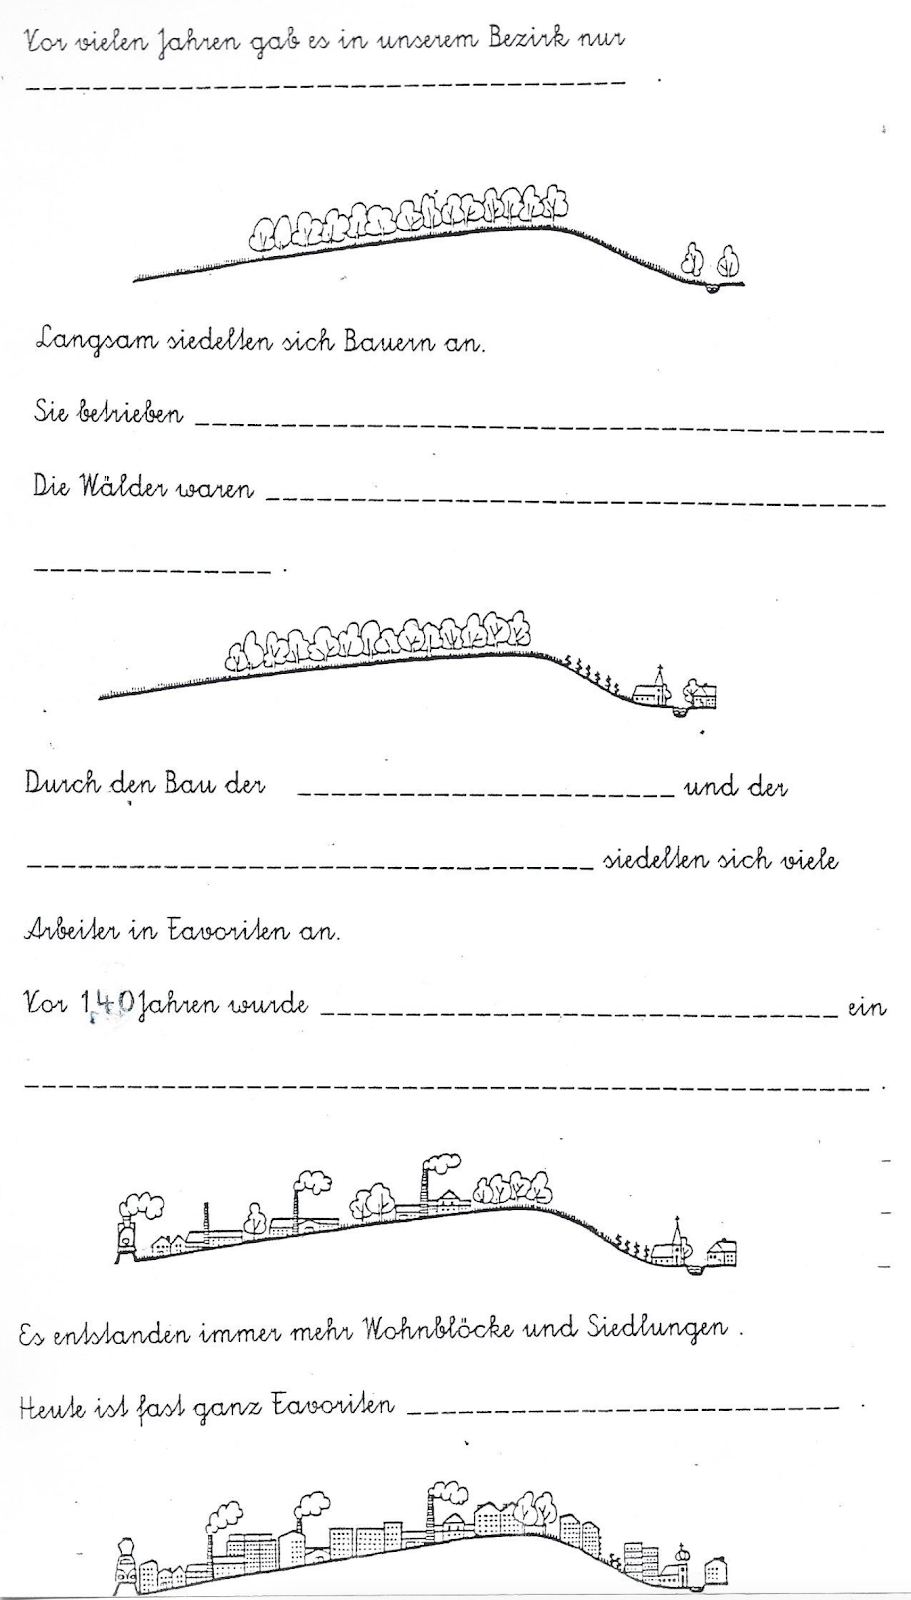 Vor vielen Jahren gab es in unserem Bezirk nur
.
Langsam siedelten sich Bauern an.
Sie betrieben
Die Wälder waren
.
Durch den Bau der und der
siedelten sich viele
Arbeiter in Favoriten an.
Vor 140 Jahren wurde ein
.
Es entstanden immer mehr Wohnblöcke und Siedlungen .
Heute ist fast ganz Favoriten .